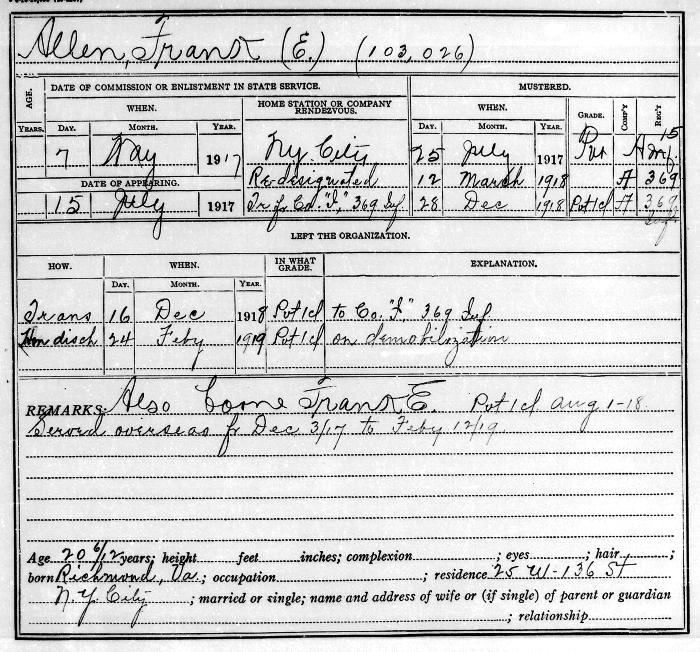 Allen, Frank (E.) (103,026)
AGE. DATE OF COMMISSION OR ENLISTMENT IN STATE SERVICE. MUSTERED.
WHEN. HOME STATION OR COMPANY RENDEZVOUS. WHEN. GRADE. COMP'Y REG'T
YEARS. DAY. MONTH. YEAR. DAY. MONTH. YEAR.
7 May 1917 N.y. City 25 July 1917 Pvt A 15 Inf.
DATE OF APPEARING. Redesignated 12 March 1918 A 369
15 July 1917 Tr fr Co. "I," 369 Inf 28 Dec 1918 Pvt 1cl A 369 Inf
LEFT THE ORGANIZATION.
HOW. WHEN. IN WHAT GRADE. EXPLANATION.
DAY. MONTH. YEAR.
Trans 16 Dec 1918 Pvt 1cl to Co. "I" 369 Inf
Hon disch 24 Feby 1919 Pvt 1cl on demobilization
REMARKS: Also borne Frank E. Pvt 1cl Aug 1-18
Served overseas fr Dec 3/17 to Feby 12/19
Age 20 6/12 years; height feet inches; complexion ; eyes ; hair ;
born Richmond, Va ; occupation ; residence 25 W-136 St
N.Y. City ; married or single; name and address of wife or (if single) of parent or guardian
; relationship